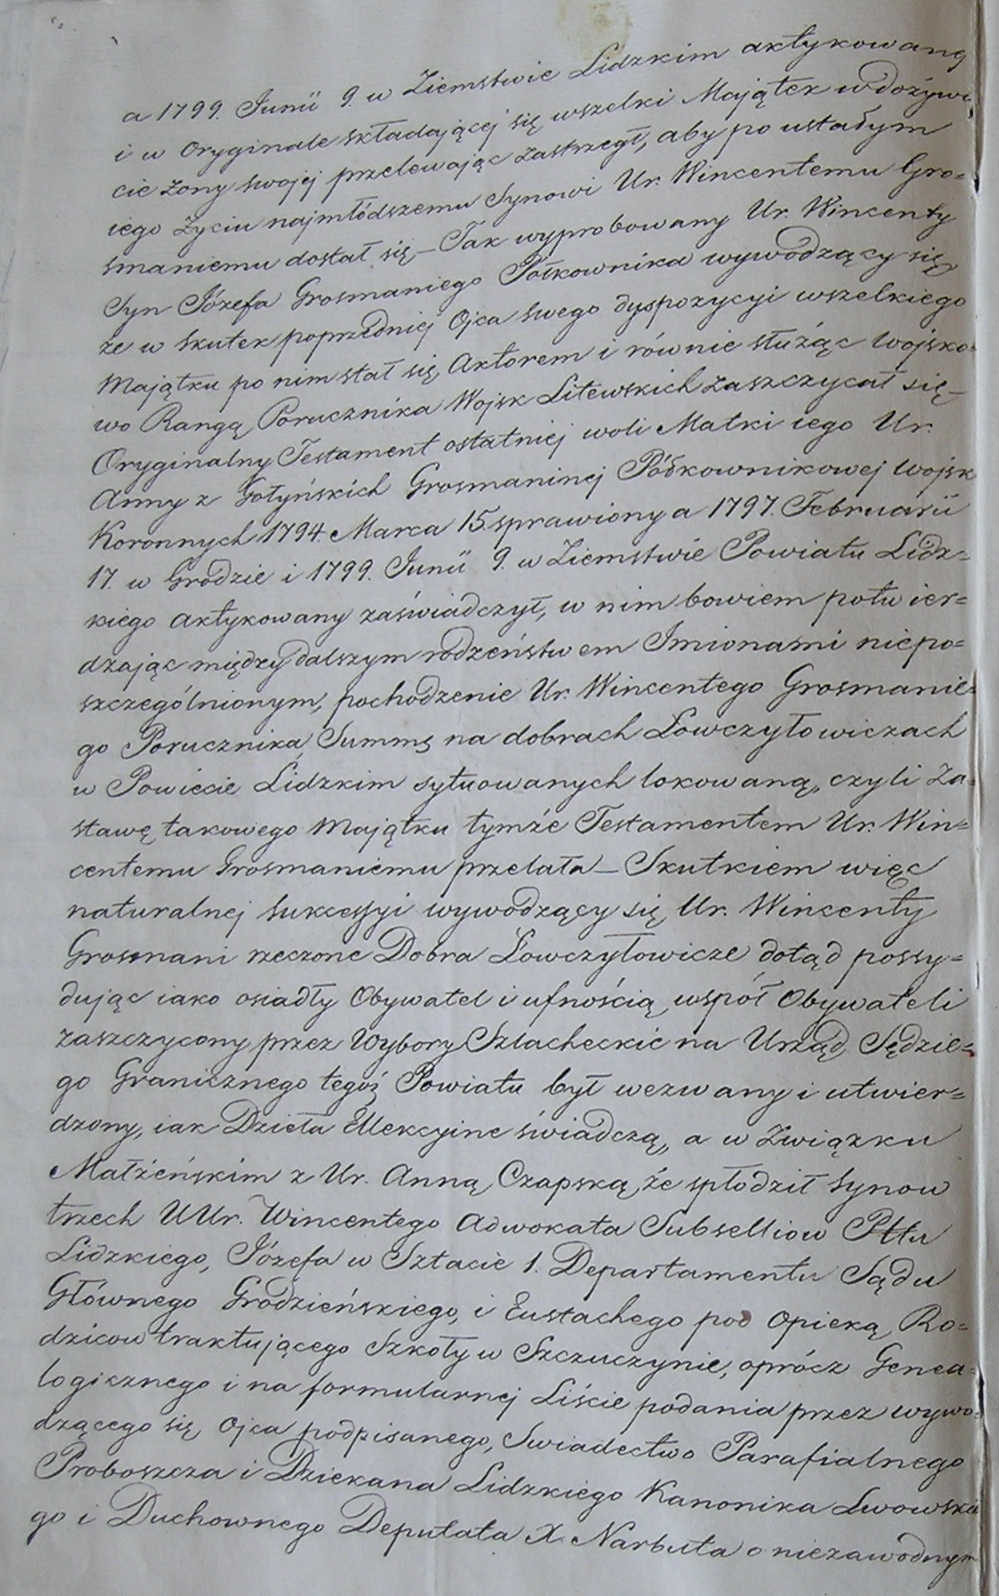 a 1799. Junii 9. w Ziemstwie Lidzkim aktykowaną
i w oryginale składającej się wszelki Majątek w dożywo
cie żony swojej przelewając zastrzegł, aby po ustałym
iego życiu najmłódszemu Synowi Ur. Wincentemu Gro=
smaniemu dostał się – Tak wyprobowany Ur. Wincenty
Syn Józefa Grosmaniego Półkownika wywodzący się
że w skutek poprzedniej Ojca swego dyspozycyi wszelkiego
Majątku po nim stał się Aktorem i równie służąc wojsko=
wo Rangą Porucznika Wojsk Litewskich zaszczycał się –
Oryginalny Testament ostatniej woli Matki iego Ur.
Anny z Gołyńskich Grosmaninej Półkownikowej wojsk
Koronnych 1794 Marca 15. sprawiony a 1797. Februarii
17. w Grodzie i 1799. Junii 9. w Ziemstwie Powiatu Lidz=
kiego aktykowany zaświadczył, w nim bowiem potwier=
dzając między dalszym rodzeństwem Imionami niepo=
szczególnionym, pochodzenie Ur. Wincentego Grosmanie=
go Porucznika, Summę na dobrach Łowczyłowiczach
w Powiecie Lidzkim sytuowanych lokowaną, czyli Za=
stawę takowego Majątku tymże Testamentem Ur. Win=
centemu Grosmaniemu przelała – Skutkiem więc
naturalnej sukcessyi wywodzący się Ur. Wincenty
Grosmani rzeczone Dobra Łowczyłowicze dotąd possy=
dując iako osiadły Obywatel i ufnością współ Obywateli
zaszczycony przez Wybory Szlacheckie na Urząd Sędzie=
go Granicznego tegoż Powiatu był wezwany i utwier=
dzony, iak Dzieła Ellekcyine świadczą, a w Związku
Małżeńskim z Ur. Anną Czapską, że spłodził synow
trzech UUr. Wincentego Adwokata Subselliow Pttu
Lidzkiego, Józefa w Sztacie 1. Departamentu Sądu
Głównego Grodzieńskiego, i Eustachego pod opieką Ro=
dzicow traktującego Szkoły w Szczuczynie, oprócz Genea=
logicznego i na formularnej Liście podania przez wywo=
dzącego się Ojca podpisanego, Swiadectwo Parafialnego
Proboszcza i Dziekana Lidzkiego Kanonika Lwowskie
go i Duchownego Deputata X. Narbuta o niezawodnym